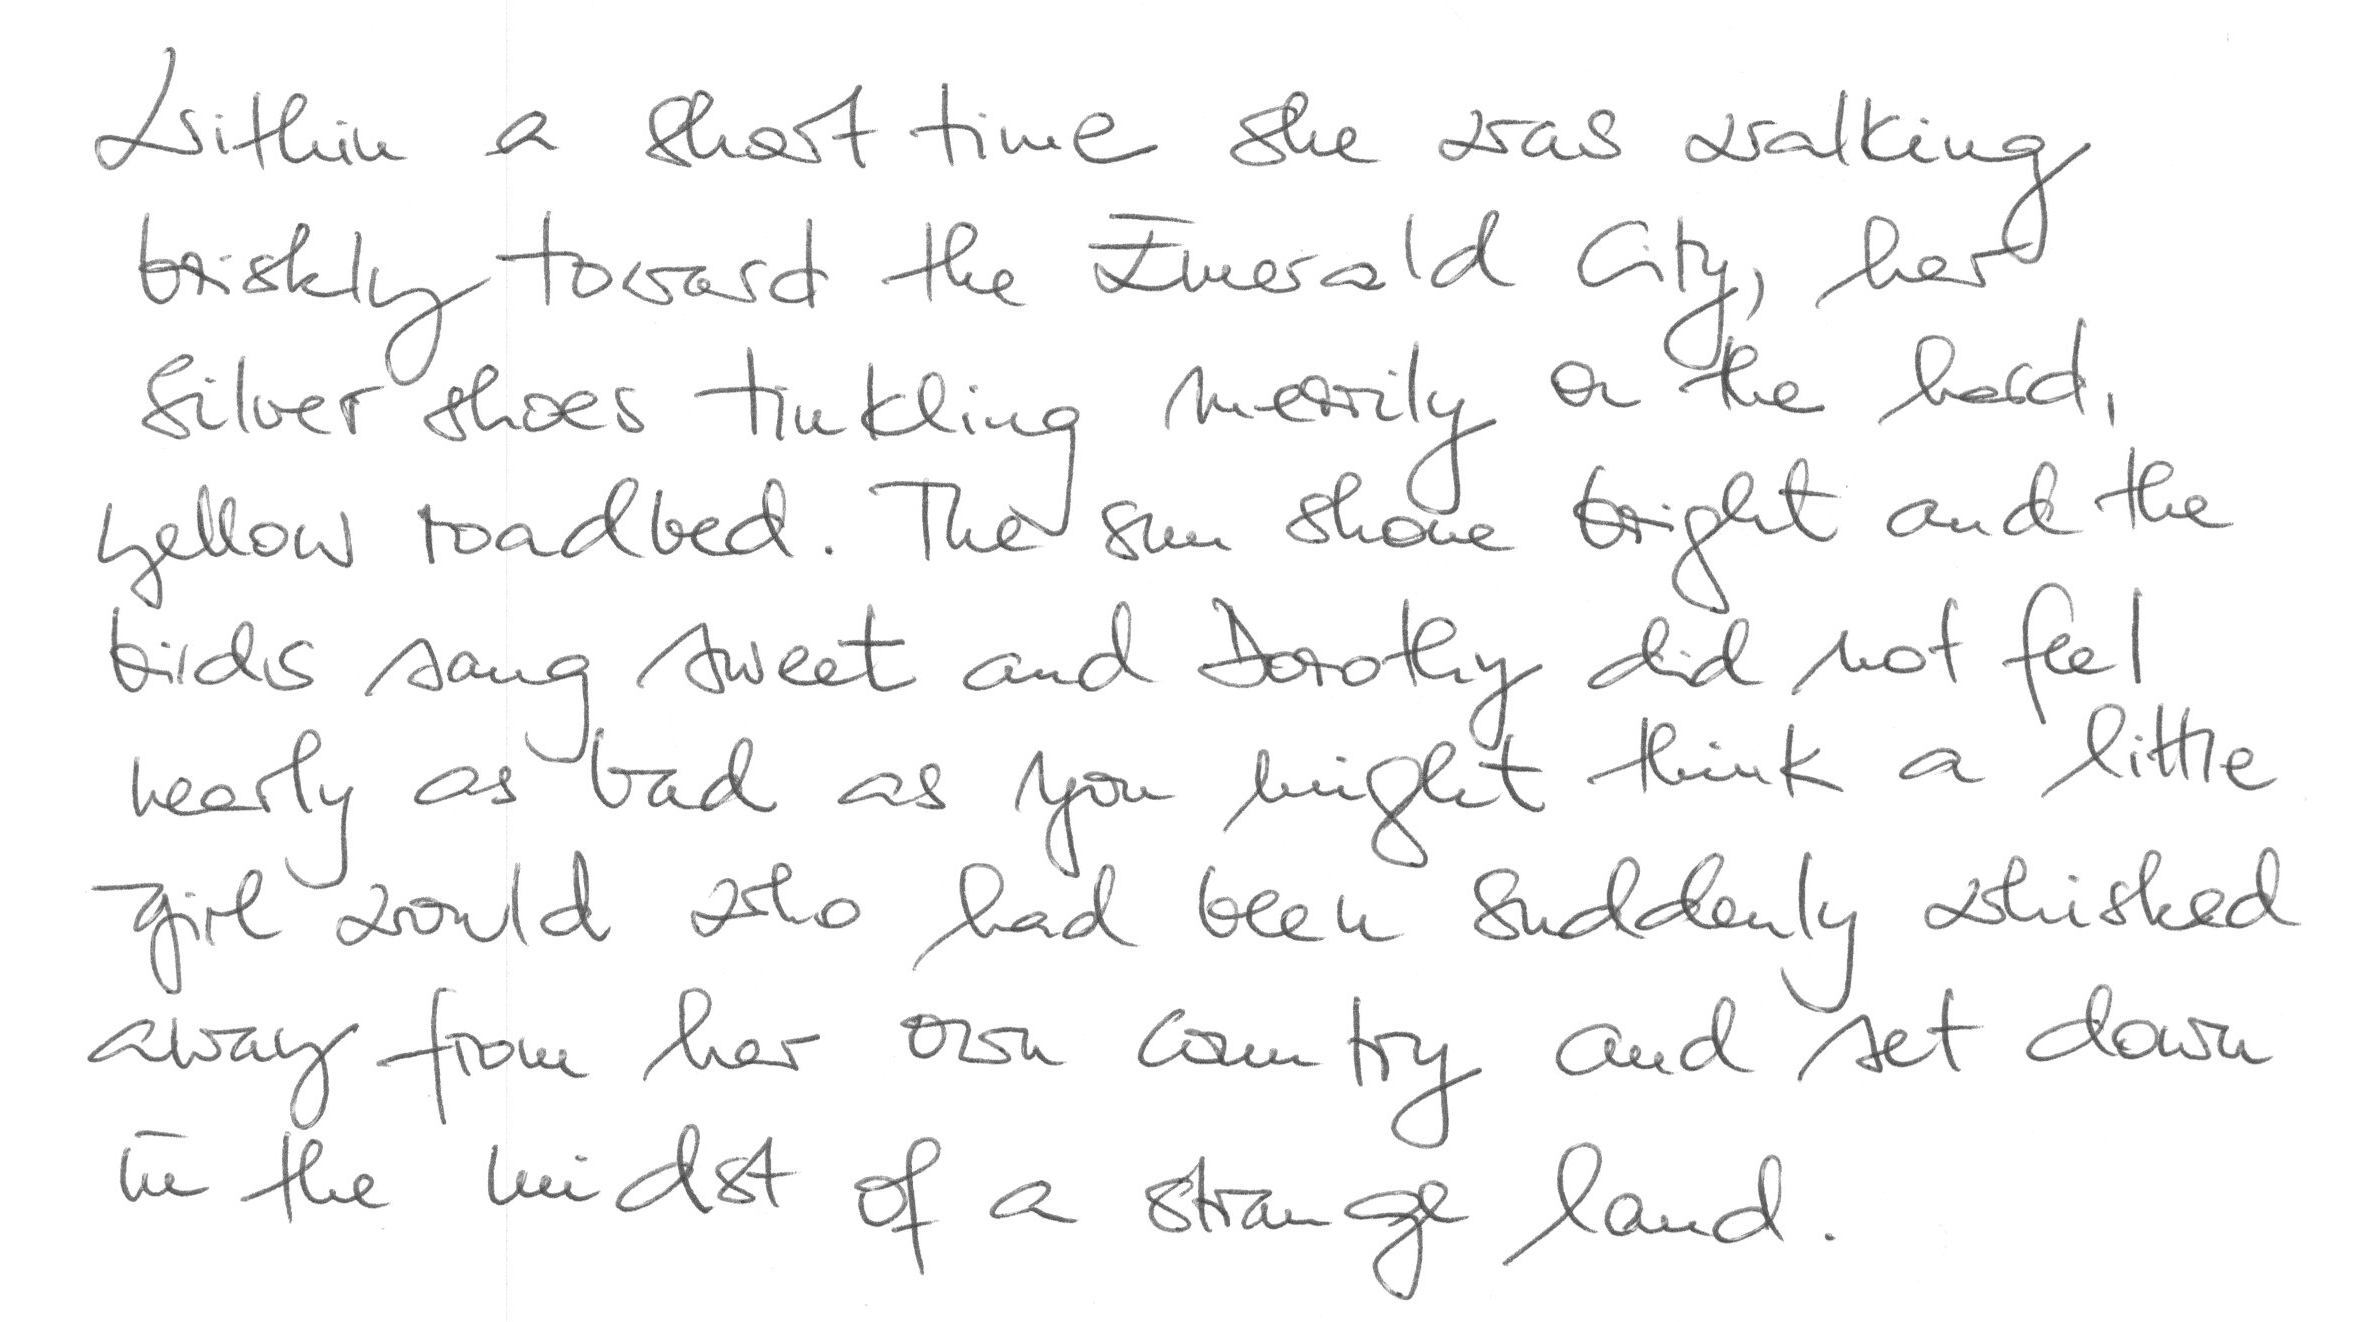 Within a short time she was walking
briskly toward the Emerald City, her
Silver shoes tinkling merrily on the hard,
yellow roadbed. The sun shone bright and the
birds sang sweet and Dorothy did not feel
nearly as bad as you might think a little
girl would who had been suddenly whisked
away from her own country and set down
in the midst of a strange land.